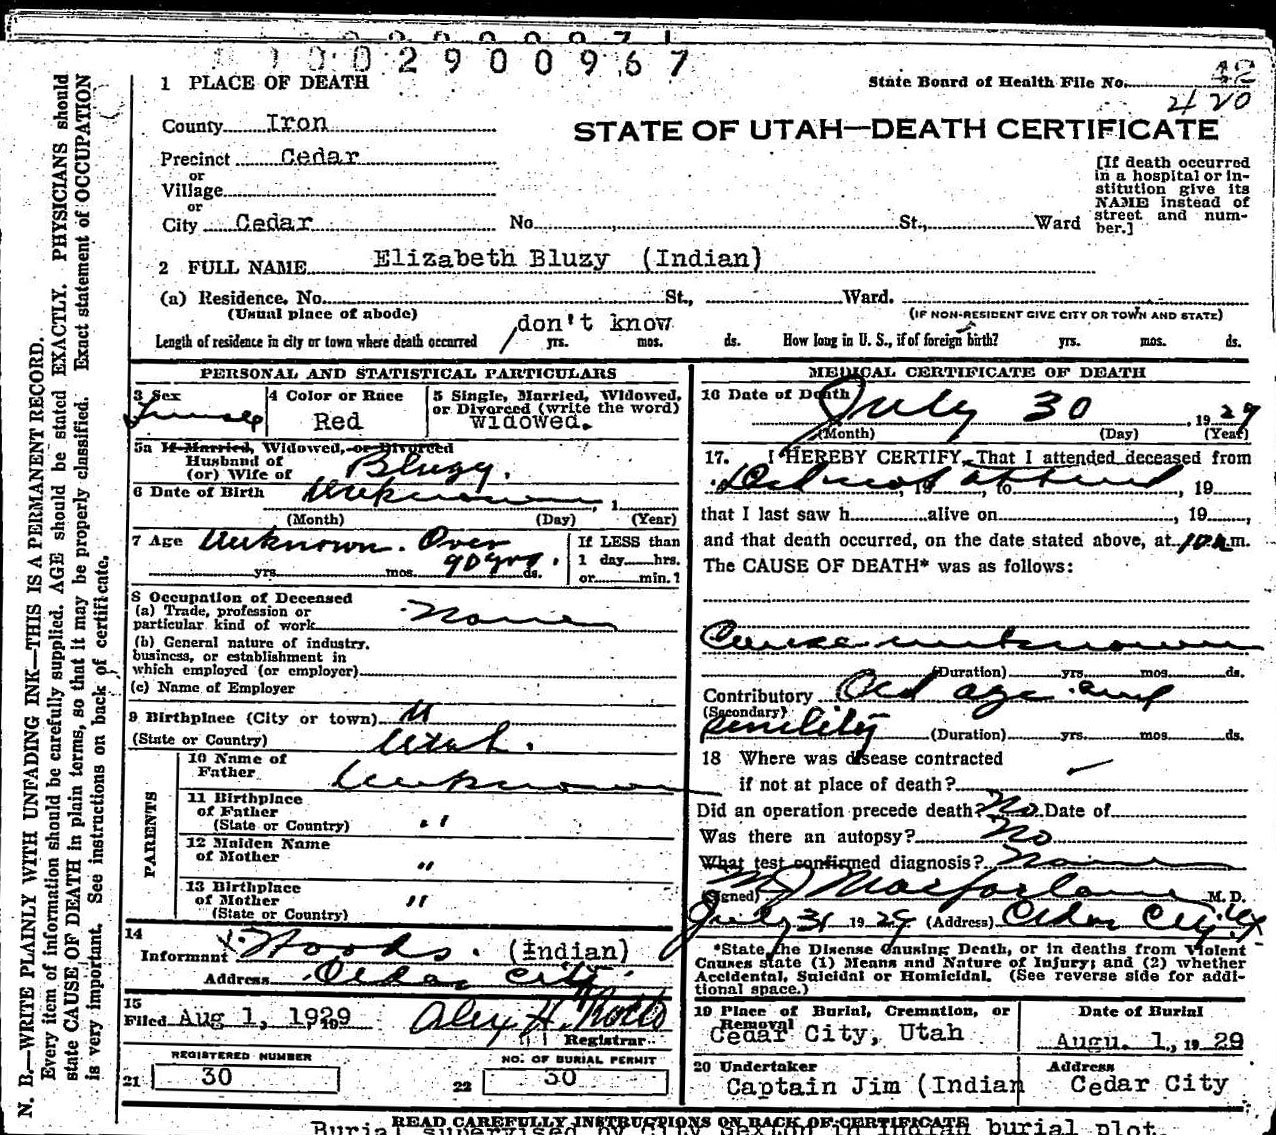 1 0 0 2 9 0 0 9 6 7
1 PLACE OF DEATH
State Board of Health File No. 42
420
County Iron
STATE OF UTAH—DEATH CERTIFICATE
Precinct Cedar
or
Village
or
City Cedar No. St., Ward
[If death occurred
in a hospital or in-
stitution give its
NAME instead of
street and num-
ber.]
2 FULL NAME Elizabeth Bluzy (Indian)
(a) Residence. No. St., Ward.
(Usual place of abode) (IF NON-RESIDENT GIVE CITY OR TOWN AND STATE)
don't know
Length of residence in city or town where death occurred yrs. mos. ds. How long in U. S., if of foreign birth? yrs. mos. ds.
PERSONAL AND STATISTICAL PARTICULARS
3 Sex
Female
4 Color or Race
Red
5 Single, Married, Widowed,
or Divorced (write the word)
widowed.
5a If Married, Widowed, or Divorced
Husband of
(or) Wife of Bluzy.
6 Date of Birth Unknown, 1
(Month) (Day) (Year)
7 Age Unknown. Over
90 yrs.
yrs. mos. ds.
If LESS than
1 day hrs.
or min.?
8 Occupation of Deceased
(a) Trade, profession or
particular kind of work None
(b) General nature of industry,
business, or establishment in
which employed (or employer)
(c) Name of Employer
9 Birthplace (City or town) U
(State or Country) Utah.
PARENTS
10 Name of
Father Unknown
11 Birthplace
of Father
(State or Country) "
12 Maiden Name
of Mother "
13 Birthplace
of Mother
(State or Country) "
14
Informant X. Woods. (Indian)
Address Cedar City.
15
Filed Aug 1, 1929 , 19
Alex H. Rollo
Registrar
REGISTERED NUMBER
21 30
NO. OF BURIAL PERMIT
22 30
MEDICAL CERTIFICATE OF DEATH
16 Date of Death
July 30 , 1929
(Month) (Day) (Year)
17. I HEREBY CERTIFY, That I attended deceased from
Did not attend , 19 , to , 19
that I last saw h alive on , 19 ,
and that death occurred, on the date stated above, at 10 A m.
The CAUSE OF DEATH* was as follows:
Cause unknown
(Duration) yrs. mos. ds.
Contributory Old age and
(Secondary)
senility (Duration) yrs. mos. ds.
18 Where was disease contracted
if not at place of death?
Did an operation precede death? No Date of
Was there an autopsy? No
What test confirmed diagnosis? None
(Signed) M J Macfarlane M. D.
July 31 1929 (Address) Cedar City. Ut
*State the Disease Causing Death, or in deaths from Violent
Causes state (1) Means and Nature of Injury; and (2) whether
Accidental, Suicidal or Homicidal. (See reverse side for addi-
tional space.)
19 Place of Burial, Cremation, or
Removal
Cedar City, Utah
Date of Burial
Augu. 1, 1929
20 Undertaker
Captain Jim (Indian
Address
Cedar City
READ CAREFULLY INSTRUCTIONS ON BACK OF CERTIFICATE
Burial supervised by City Sexton in Indian burial plot
N. B.—WRITE PLAINLY WITH UNFADING INK—THIS IS A PERMANENT RECORD.
Every item of information should be carefully supplied. AGE should be stated EXACTLY. PHYSICIANS should
state CAUSE OF DEATH in plain terms, so that it may be properly classified. Exact statement of OCCUPATION
is very important. See instructions on back of certificate.